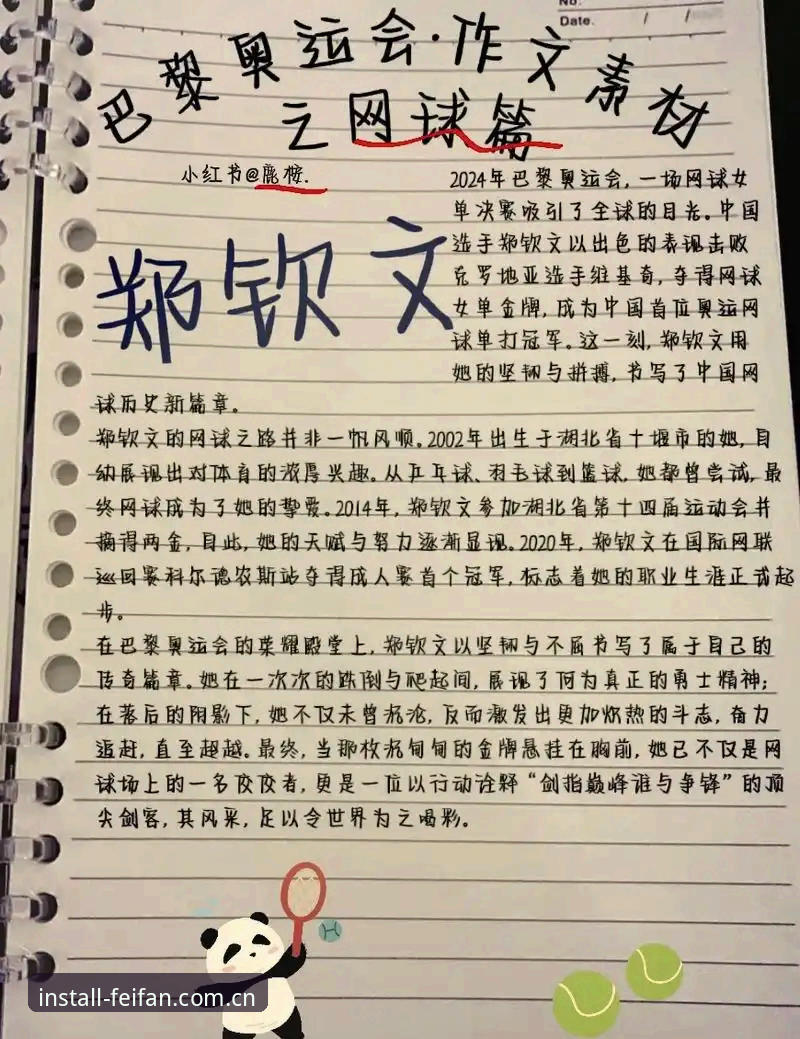 No.
Date.
巴黎奥运会·作文素材
之网球篇
小红书@鹿桉.
郑钦文
2024年巴黎奥运会,一场网球女
单决赛吸引了全球的目光。中国
选手郑钦文以出色的表现击败
克罗地亚选手维基奇,夺得网球
女单金牌,成为中国首位奥运网
球单打冠军。这一刻,郑钦文用
她的坚韧与拼搏,书写了中国网
球历史新篇章。
郑钦文的网球之路并非一帆风顺。2002年出生于湖北省十堰市的她,自
幼展现出对体育的浓厚兴趣。从乒乓球、羽毛球到篮球,她都曾尝试,最
终网球成为了她的挚爱。2014年,郑钦文参加湖北省第十四届运动会并
摘得两金,自此,她的天赋与努力逐渐显现。2020年,郑钦文在国际网联
巡回赛科尔德农斯站夺得成人赛首个冠军,标志着她的职业生涯正式起
步。
在巴黎奥运会的荣耀殿堂上,郑钦文以坚韧与不屈书写了属于自己的
传奇篇章。她在一次次的跌倒与爬起间,展现了何为真正的勇士精神;
在落后的阴影下,她不仅未曾沉沦,反而激发出更加炽热的斗志,奋力
追赶,直至超越。最终,当那枚沉甸甸的金牌悬挂在胸前,她已不仅是网
球场上的一名佼佼者,更是一位以行动诠释“剑指巅峰谁与争锋”的顶
尖剑客,其风采,足以令世界为之喝彩。
install-feifan.com.cn